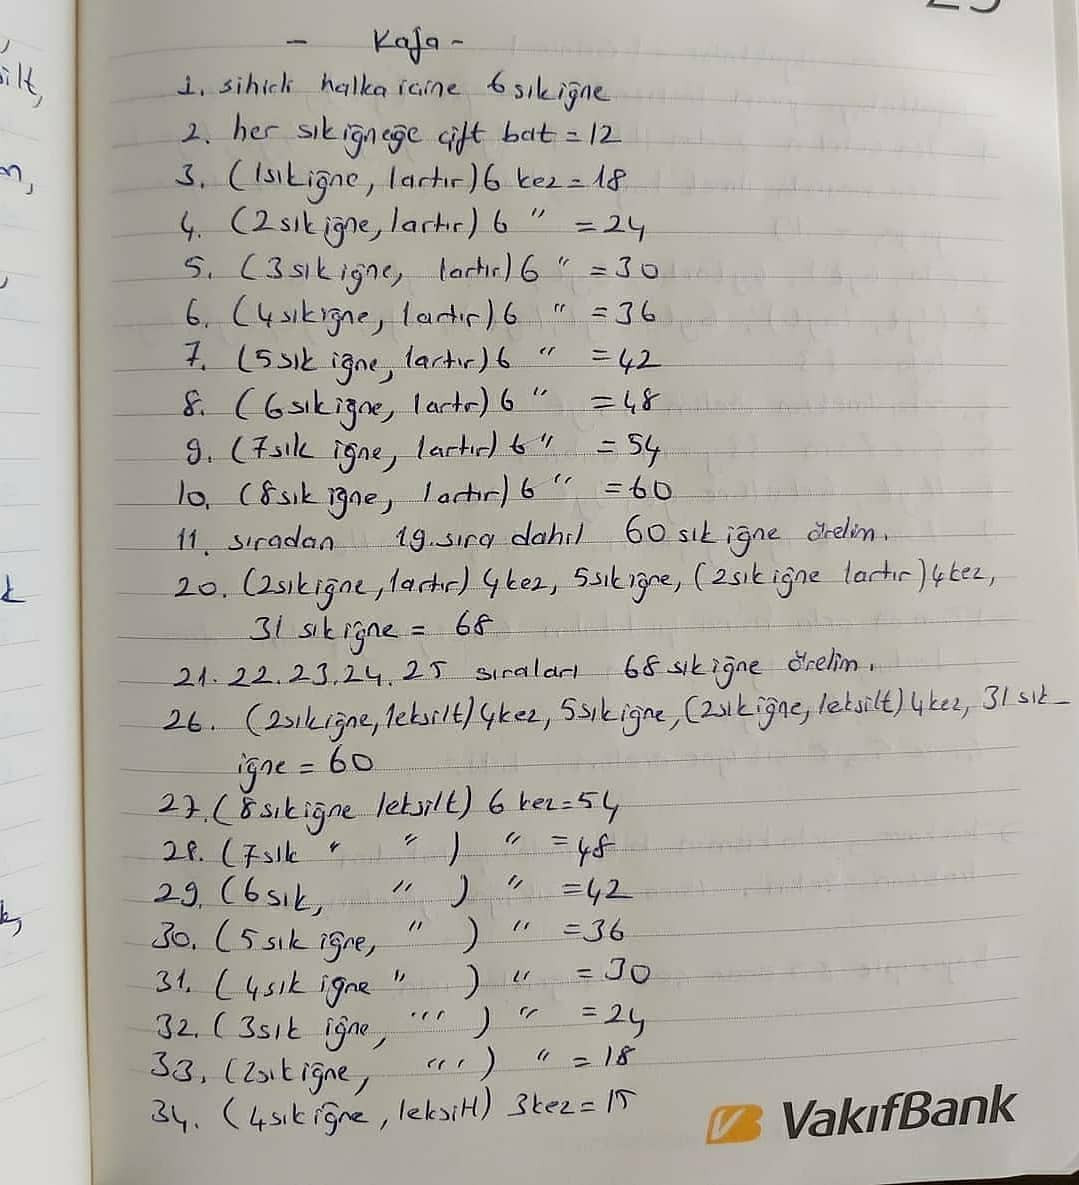 - Kafa -
1. sihirli halka icine 6 sık iğne
2. her sık iğneğe çift bat = 12
3. (1sık iğne, 1artır) 6 kez = 18
4. (2 sık iğne, 1artır) 6 " = 24
5. (3 sık iğne, 1artır) 6 " = 30
6. (4 sık iğne, 1artır) 6 " = 36
7. (5 sık iğne, 1artır) 6 " = 42
8. (6 sık iğne, 1artır) 6 " = 48
9. (7 sık iğne, 1artır) 6 " = 54
10. (8 sık iğne, 1artır) 6 " = 60
11. sıradan 19. sıra dahil 60 sık iğne örelim.
20. (2 sık iğne, 1artır) 4 kez, 5 sık iğne, (2 sık iğne 1artır) 4 kez,
31 sık iğne = 68
21. 22. 23. 24. 25 sıraları 68 sık iğne örelim.
26. (2 sık iğne, 1eksilt) 4 kez, 5 sık iğne, (2 sık iğne, 1eksilt) 4 kez, 31 sık
iğne = 60
27. (8 sık iğne 1eksilt) 6 kez = 54
28. (7 sık " " ) " = 48
29. (6 sık, " ) " = 42
30. (5 sık iğne, " ) " = 36
31. (4 sık iğne " ) " = 30
32. (3 sık iğne, " ) " = 24
33. (2 sık iğne, " ) " = 18
34. (4 sık iğne, 1eksilt) 3 kez = 15
VakıfBank